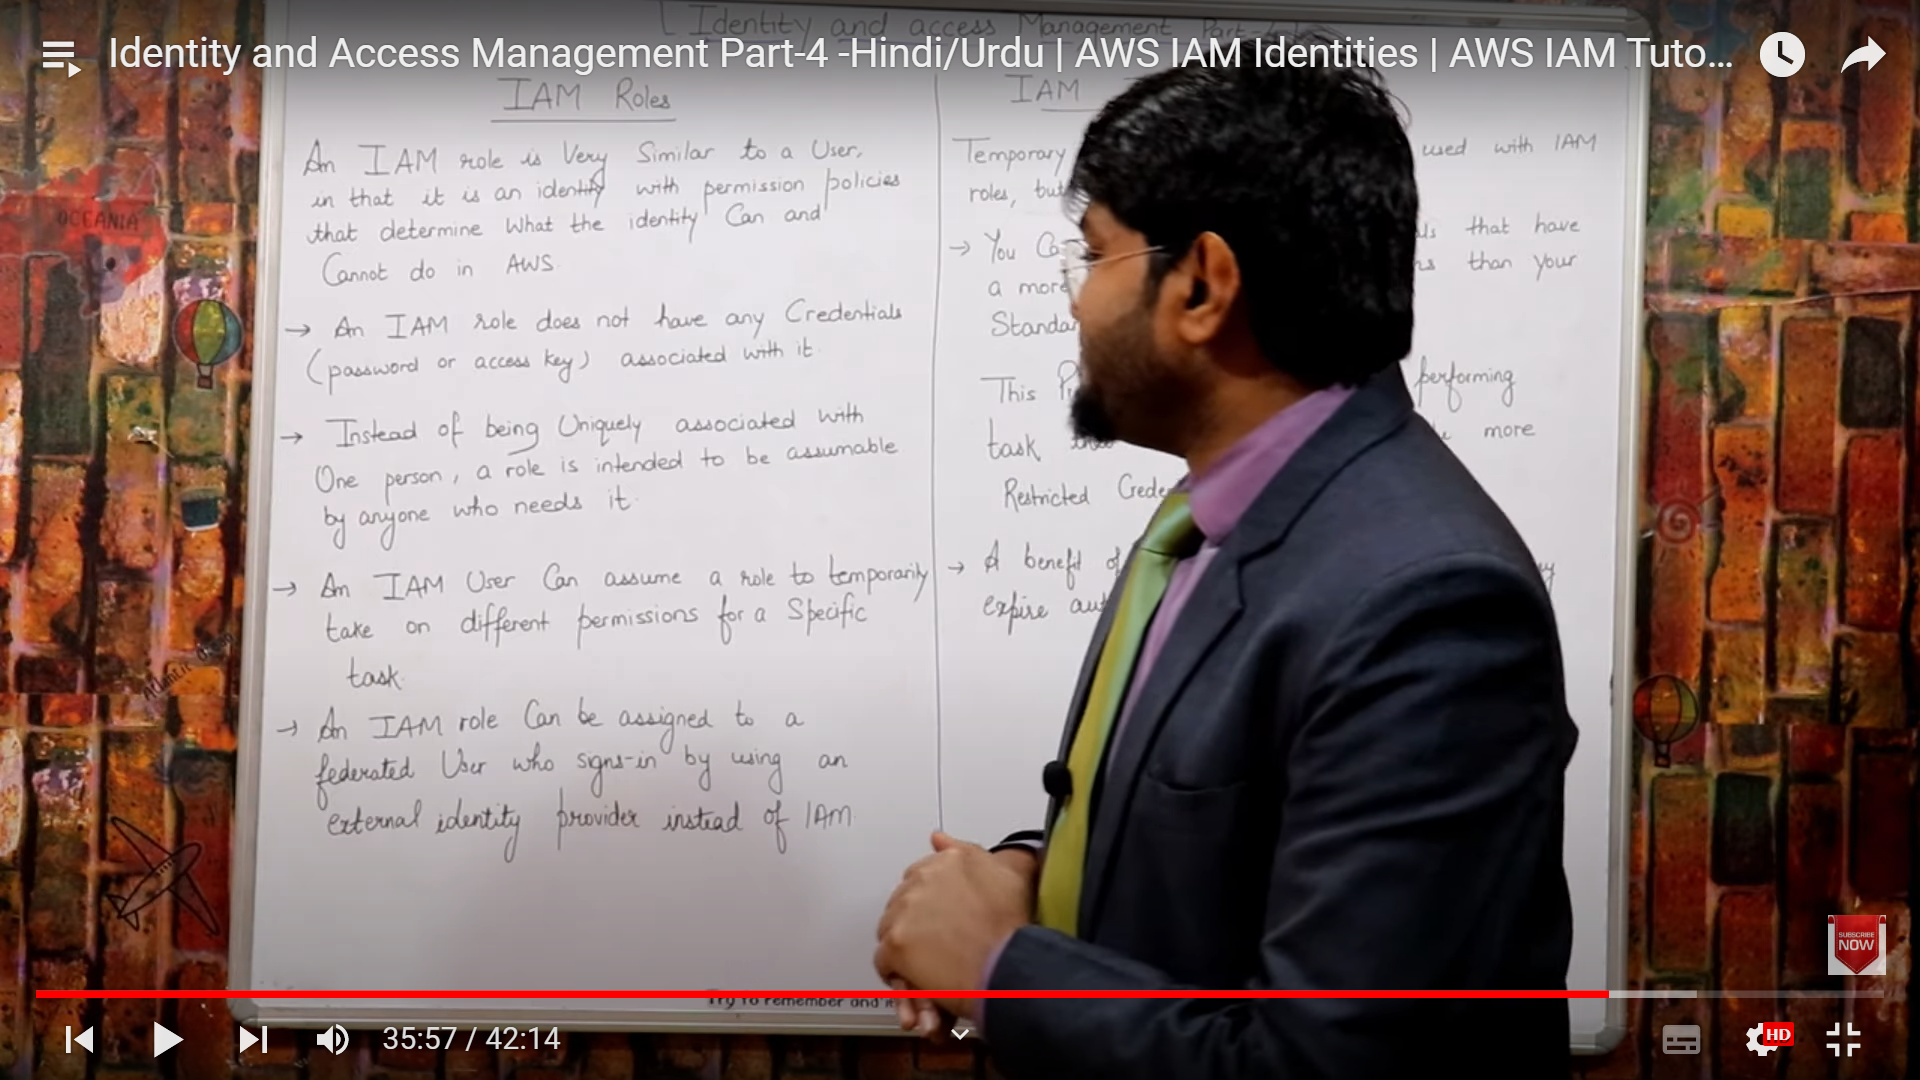 Identity and access Management Part-4
Identity and Access Management Part-4 -Hindi/Urdu | AWS IAM Identities | AWS IAM Tuto...
IAM Roles
An IAM role is Very Similar to a User,
in that it is an identity with permission policies
that determine What the identity Can and
Cannot do in AWS
→ An IAM role does not have any Credentials
(password or access key) associated with it.
→ Instead of being Uniquely associated with
One person, a role is intended to be assumable
by anyone who needs it.
→ An IAM User Can assume a role to temporarily
take on different permissions for a Specific
task.
→ An IAM role Can be assigned to a
federated User who signs-in by using an
external identity provider instead of IAM
IAM
Temporary used with IAM
roles, but
→ You that have
a more than your
Standar
This performing
task more
Restricted
→ A benefit of
expire
Try to remember and
OCEANIA
Atlantic Ocean
SUBSCRIBE
NOW
35:57 / 42:14
HD